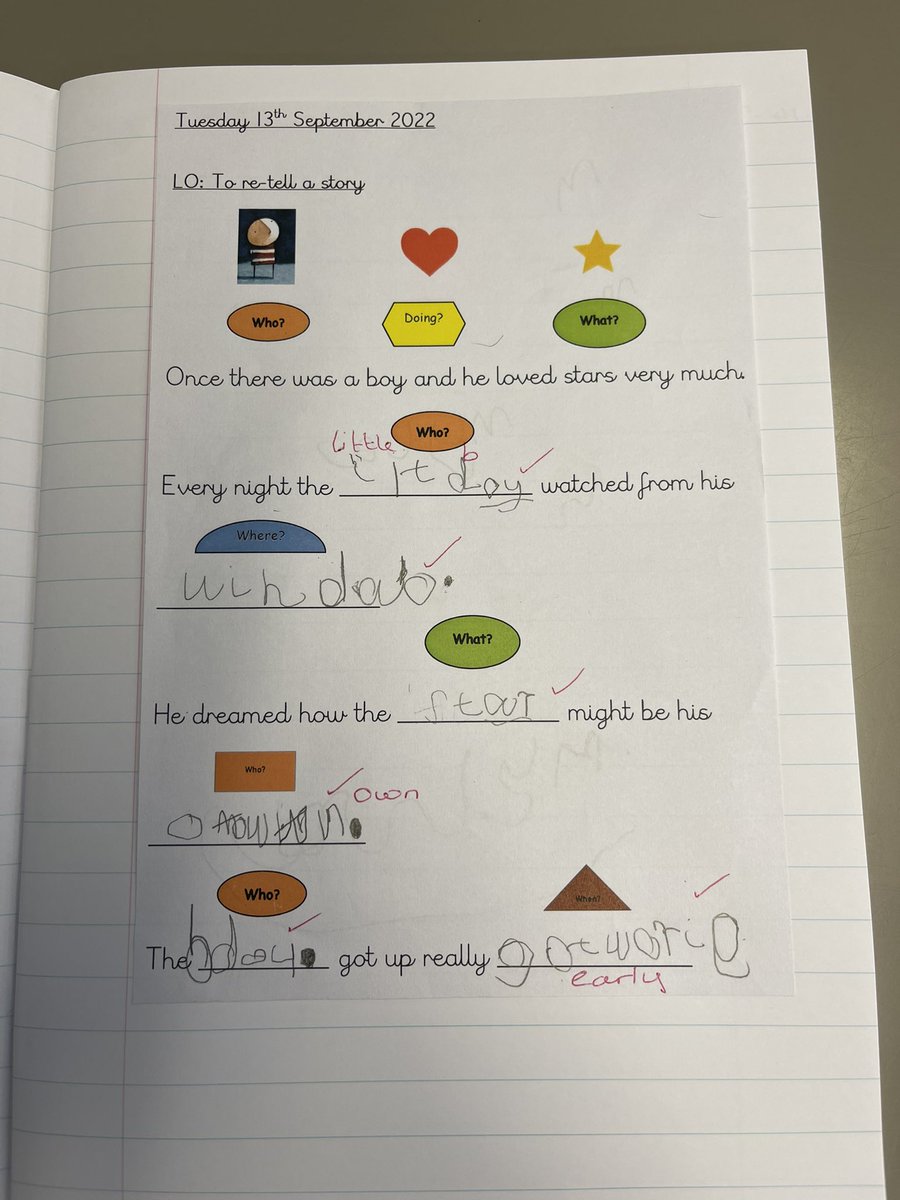 Tuesday 13th September 2022
LO: To re-tell a story
Who? Doing? What?
Once there was a boy and he loved stars very much.
Who?
little b
Every night the doy watched from his
Where?
windab.
What?
He dreamed how the star might be his
Who?
own
Who? When?
The got up really
early